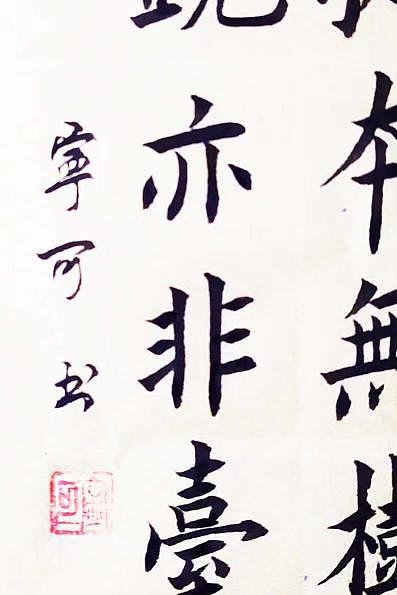 本無樹
亦非臺
寧可书